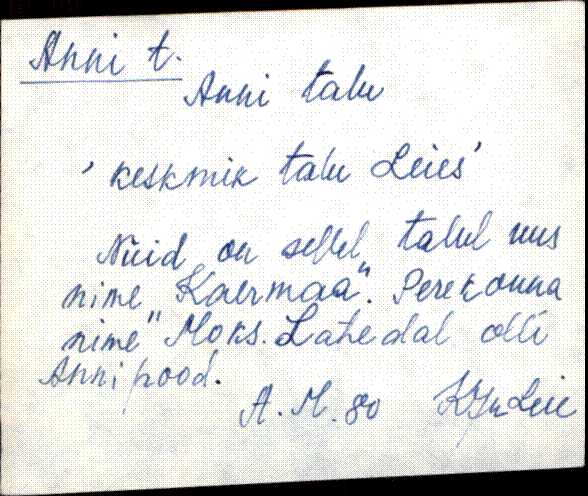 Anni t.
Anni talu
' keskmik talu Leies'
Nüid on sellel talul uus
nime Kaermaa". Perekonna
nime " Moks. Lahedal olli
Anni pood.
A. M. 80